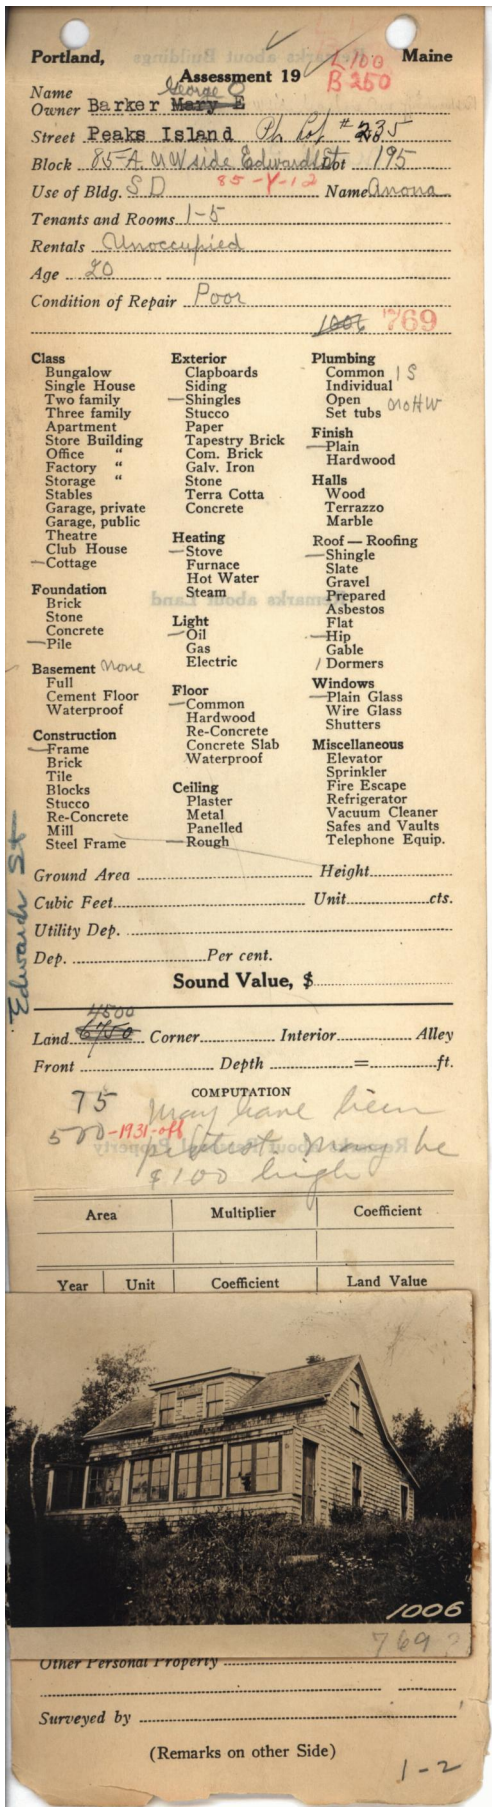 Portland, Maine
L 100
Assessment 19
B 250
George O
Name
Owner Barker Mary E
Street Peaks Island Ph Lot # 235
Block 85-A. NW side Edward St Lot 195
85-Y-12
Use of Bldg. S D Name Anona
Tenants and Rooms 1-5
Rentals Unoccupied
Age 20
Condition of Repair Poor
1006 769
Class
Bungalow
Single House
Two family
Three family
Apartment
Store Building
Office "
Factory "
Storage "
Stables
Garage, private
Garage, public
Theatre
Club House
Cottage
Foundation
Brick
Stone
Concrete
Pile
Basement None
Full
Cement Floor
Waterproof
Construction
Frame
Brick
Tile
Blocks
Stucco
Re-Concrete
Mill
Steel Frame
Exterior
Clapboards
Siding
Shingles
Stucco
Paper
Tapestry Brick
Com. Brick
Galv. Iron
Stone
Terra Cotta
Concrete
Heating
Stove
Furnace
Hot Water
Steam
Light
Oil
Gas
Electric
Floor
Common
Hardwood
Re-Concrete
Concrete Slab
Waterproof
Ceiling
Plaster
Metal
Panelled
Rough
Plumbing
Common 1 S
Individual
Open
Set tubs no HW
Finish
Plain
Hardwood
Halls
Wood
Terrazzo
Marble
Roof — Roofing
Shingle
Slate
Gravel
Prepared
Asbestos
Flat
Hip
Gable
/ Dormers
Windows
Plain Glass
Wire Glass
Shutters
Miscellaneous
Elevator
Sprinkler
Fire Escape
Refrigerator
Vacuum Cleaner
Safes and Vaults
Telephone Equip.
Edward St
Ground Area Height
Cubic Feet Unit cts.
Utility Dep.
Dep. Per cent.
Sound Value, $
4500
Land 6750 Corner Interior Alley
Front Depth = ft.
COMPUTATION
75 may have been
500-1931-off may be
$100 high
Area Multiplier Coefficient
Year Unit Coefficient Land Value
1006
769
Other Personal Property
Surveyed by
(Remarks on other Side)
1-2